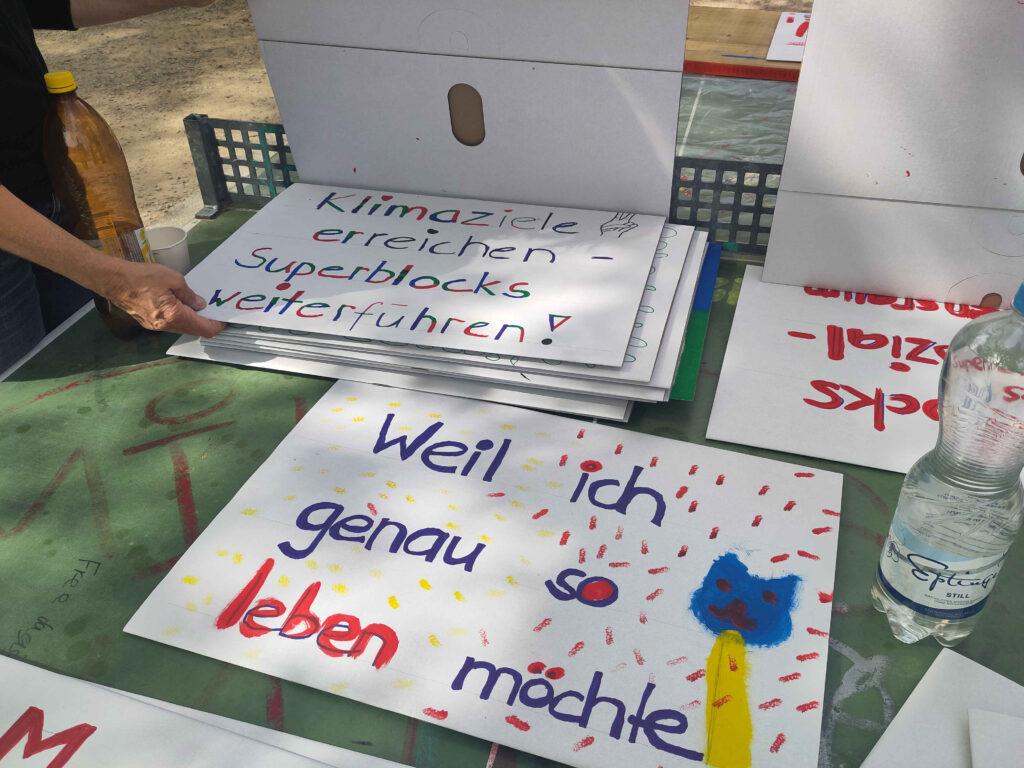 Klimaziele
erreichen -
Superblocks
weiterführen!
Weil ich
genau so
leben
möchte
ocks
ozial-
Free
Eptinger
STILL
M